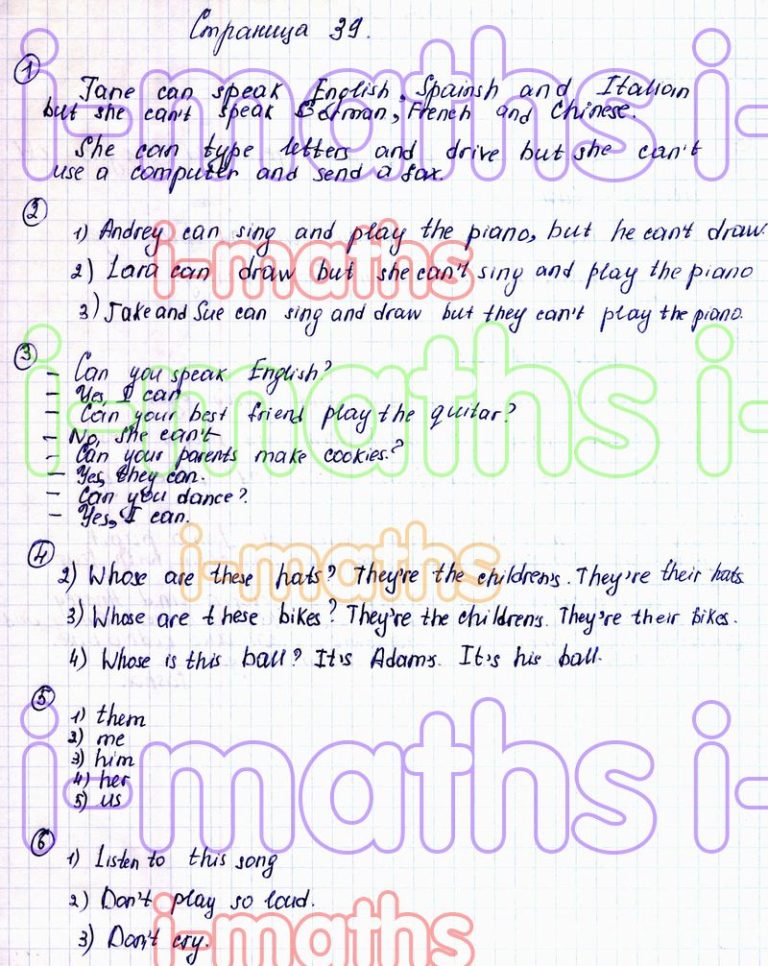 Страница 39.
1
Jane can speak English, Spainsh and Italian
but she can't speak German, French and Chinese.
She can type letters and drive but she can't
use a computer and send a fax.
2
1) Andrey can sing and play the piano, but he can't draw.
2) Lara can draw but she can't sing and play the piano
3) Jake and Sue can sing and draw but they can't play the piano.
3
- Can you speak English?
- Yes, I can
- Can your best friend play the quitar?
- No, she can't
- Can your parents make cookies?
- Yes, they can.
- Can you dance?
- Yes, I can.
4
2) Whose are these hats? They're the children's. They're their hats.
3) Whose are these bikes? They're the children's. They're their bikes.
4) Whose is this ball? It's Adams. It's his ball.
5
1) them
2) me
3) him
4) her
5) us
6
1) Listen to this song
2) Don't play so loud.
3) Don't cry.
i-maths i-
i-maths
i-maths i-
i-maths
i-maths i-
i-maths